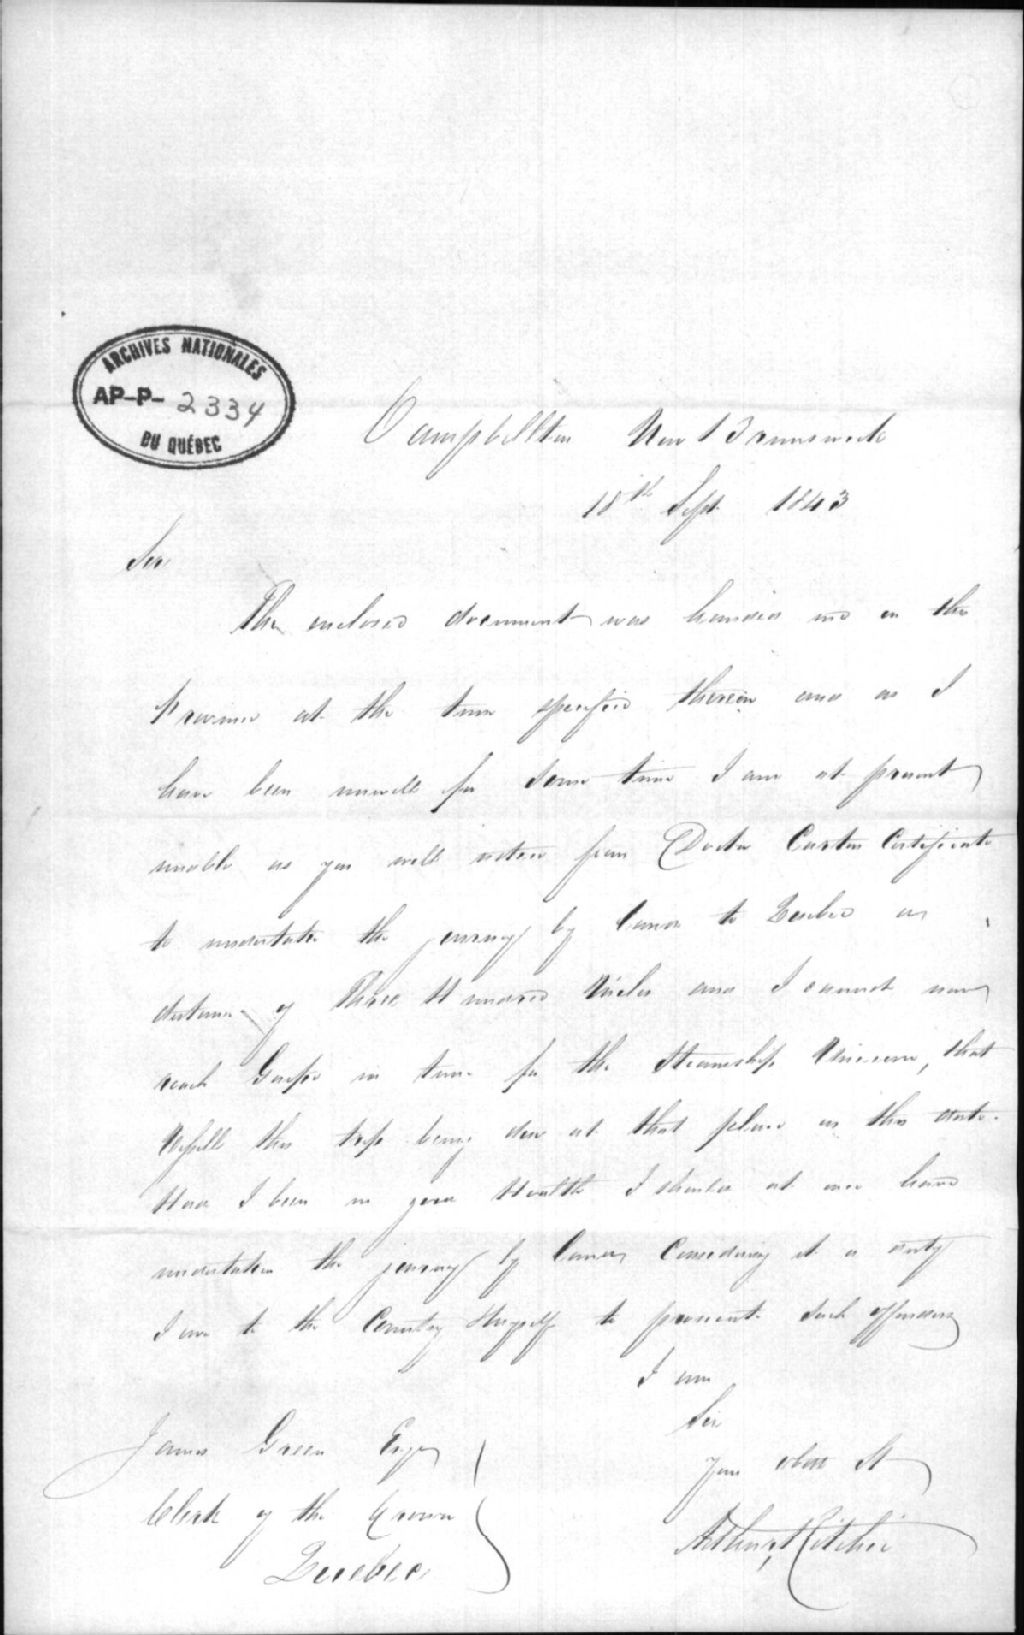 ARCHIVES NATIONALES
AP-P- 2334
DU QUÉBEC
Campbellton New Brunswick
18th Sept 1843
Sir
The enclosed document was handed me on the
at the time specified therein and as I
have been unwell for some time I am at present
unable as you will notice from Doctor Carters Certificate
to undertake the journey by Canoe to Quebec a
distance of Three Hundred Miles and I cannot now
reach Gaspe in time for the Steamship Unicorn, that
this trip being due at that place on this date.
Had I been in good Health I should at once have
undertaken the journey by Canoe Considering it a duty
I owe to the Country & Myself to prosecute such offenders
I am
Sir
Your obdt St
Arthur Ritchie
James Green Esqr
Clerk of the Crown
Quebec